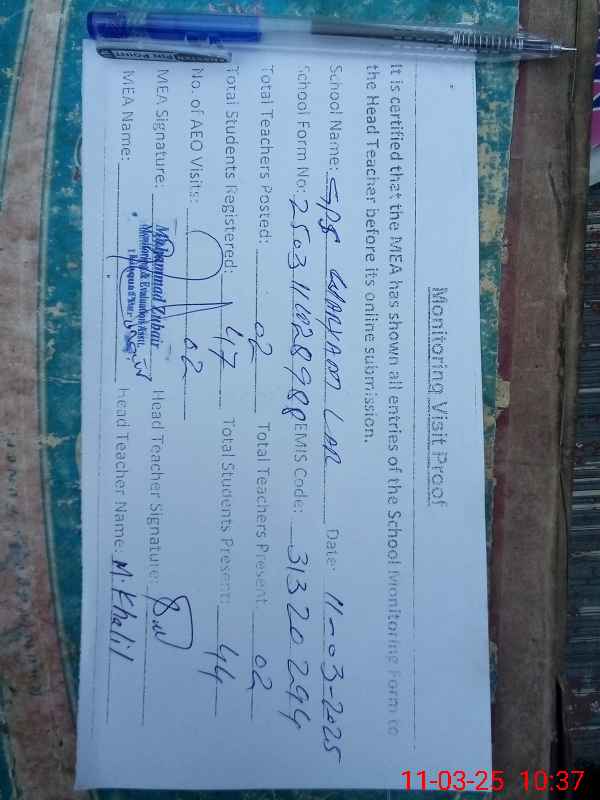 Monitoring Visit Proof
It is certified that the MEA has shown all entries of the School Monitoring Form to
the Head Teacher before its online submission.
School Name: GPS WARYAM LAR Date: 11-03-2025
School Form No: 25031102898 EMIS Code: 31320294
Total Teachers Posted: 02 Total Teachers Present 02
Total Students Registered: 47 Total Students Present: 44
No. of AEO Visits: 02
MEA Signature: Muhammad Zubair Head Teacher Signature:
Monitoring & Evaluation Asstt.
MEA Name: Head Teacher Name: M. Khalil
PIN POINT
11-03-25 10:37